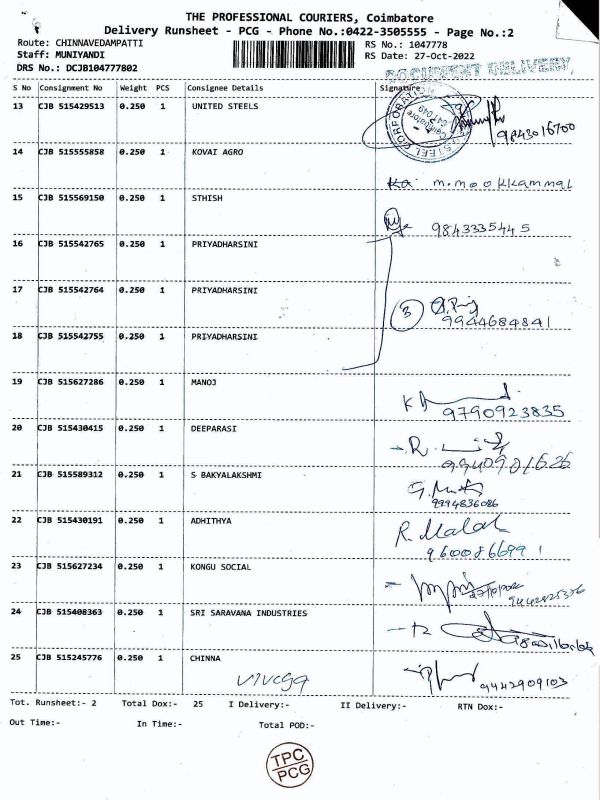 THE PROFESSIONAL COURIERS, Coimbatore
Delivery Runsheet - PCG - Phone No.:0422-3505555 - Page No.:2
Route: CHINNAVEDAMPATTI
RS No.: 1047778
Staff: MUNIYANDI
RS Date: 27-Oct-2022
DRS No.: DCJB104777802
DOCUMENT DELIVERY
S No Consignment No Weight PCS Consignee Details Signature
13 CJB 515429513 0.250 1 UNITED STEELS
STEEL CORPORATION
9843016700
14 CJB 515555858 0.250 1 KOVAI AGRO
m.mookkammal
15 CJB 515569150 0.250 1 STHISH
9843335445
16 CJB 515542765 0.250 1 PRIYADHARSINI
17 CJB 515542764 0.250 1 PRIYADHARSINI
3
9944684841
18 CJB 515542755 0.250 1 PRIYADHARSINI
19 CJB 515627286 0.250 1 MANOJ
9790923835
20 CJB 515430415 0.250 1 DEEPARASI
21 CJB 515589312 0.250 1 S BAKYALAKSHMI
9994836086
22 CJB 515430191 0.250 1 ADHITHYA
R. Malar
9600866991
23 CJB 515627234 0.250 1 KONGU SOCIAL
24 CJB 515408363 0.250 1 SRI SARAVANA INDUSTRIES
25 CJB 515245776 0.250 1 CHINNA
9442909103
Tot. Runsheet:- 2 Total Dox:- 25 I Delivery:- II Delivery:- RTN Dox:-
Out Time:- In Time:- Total POD:-
TPC
PCG